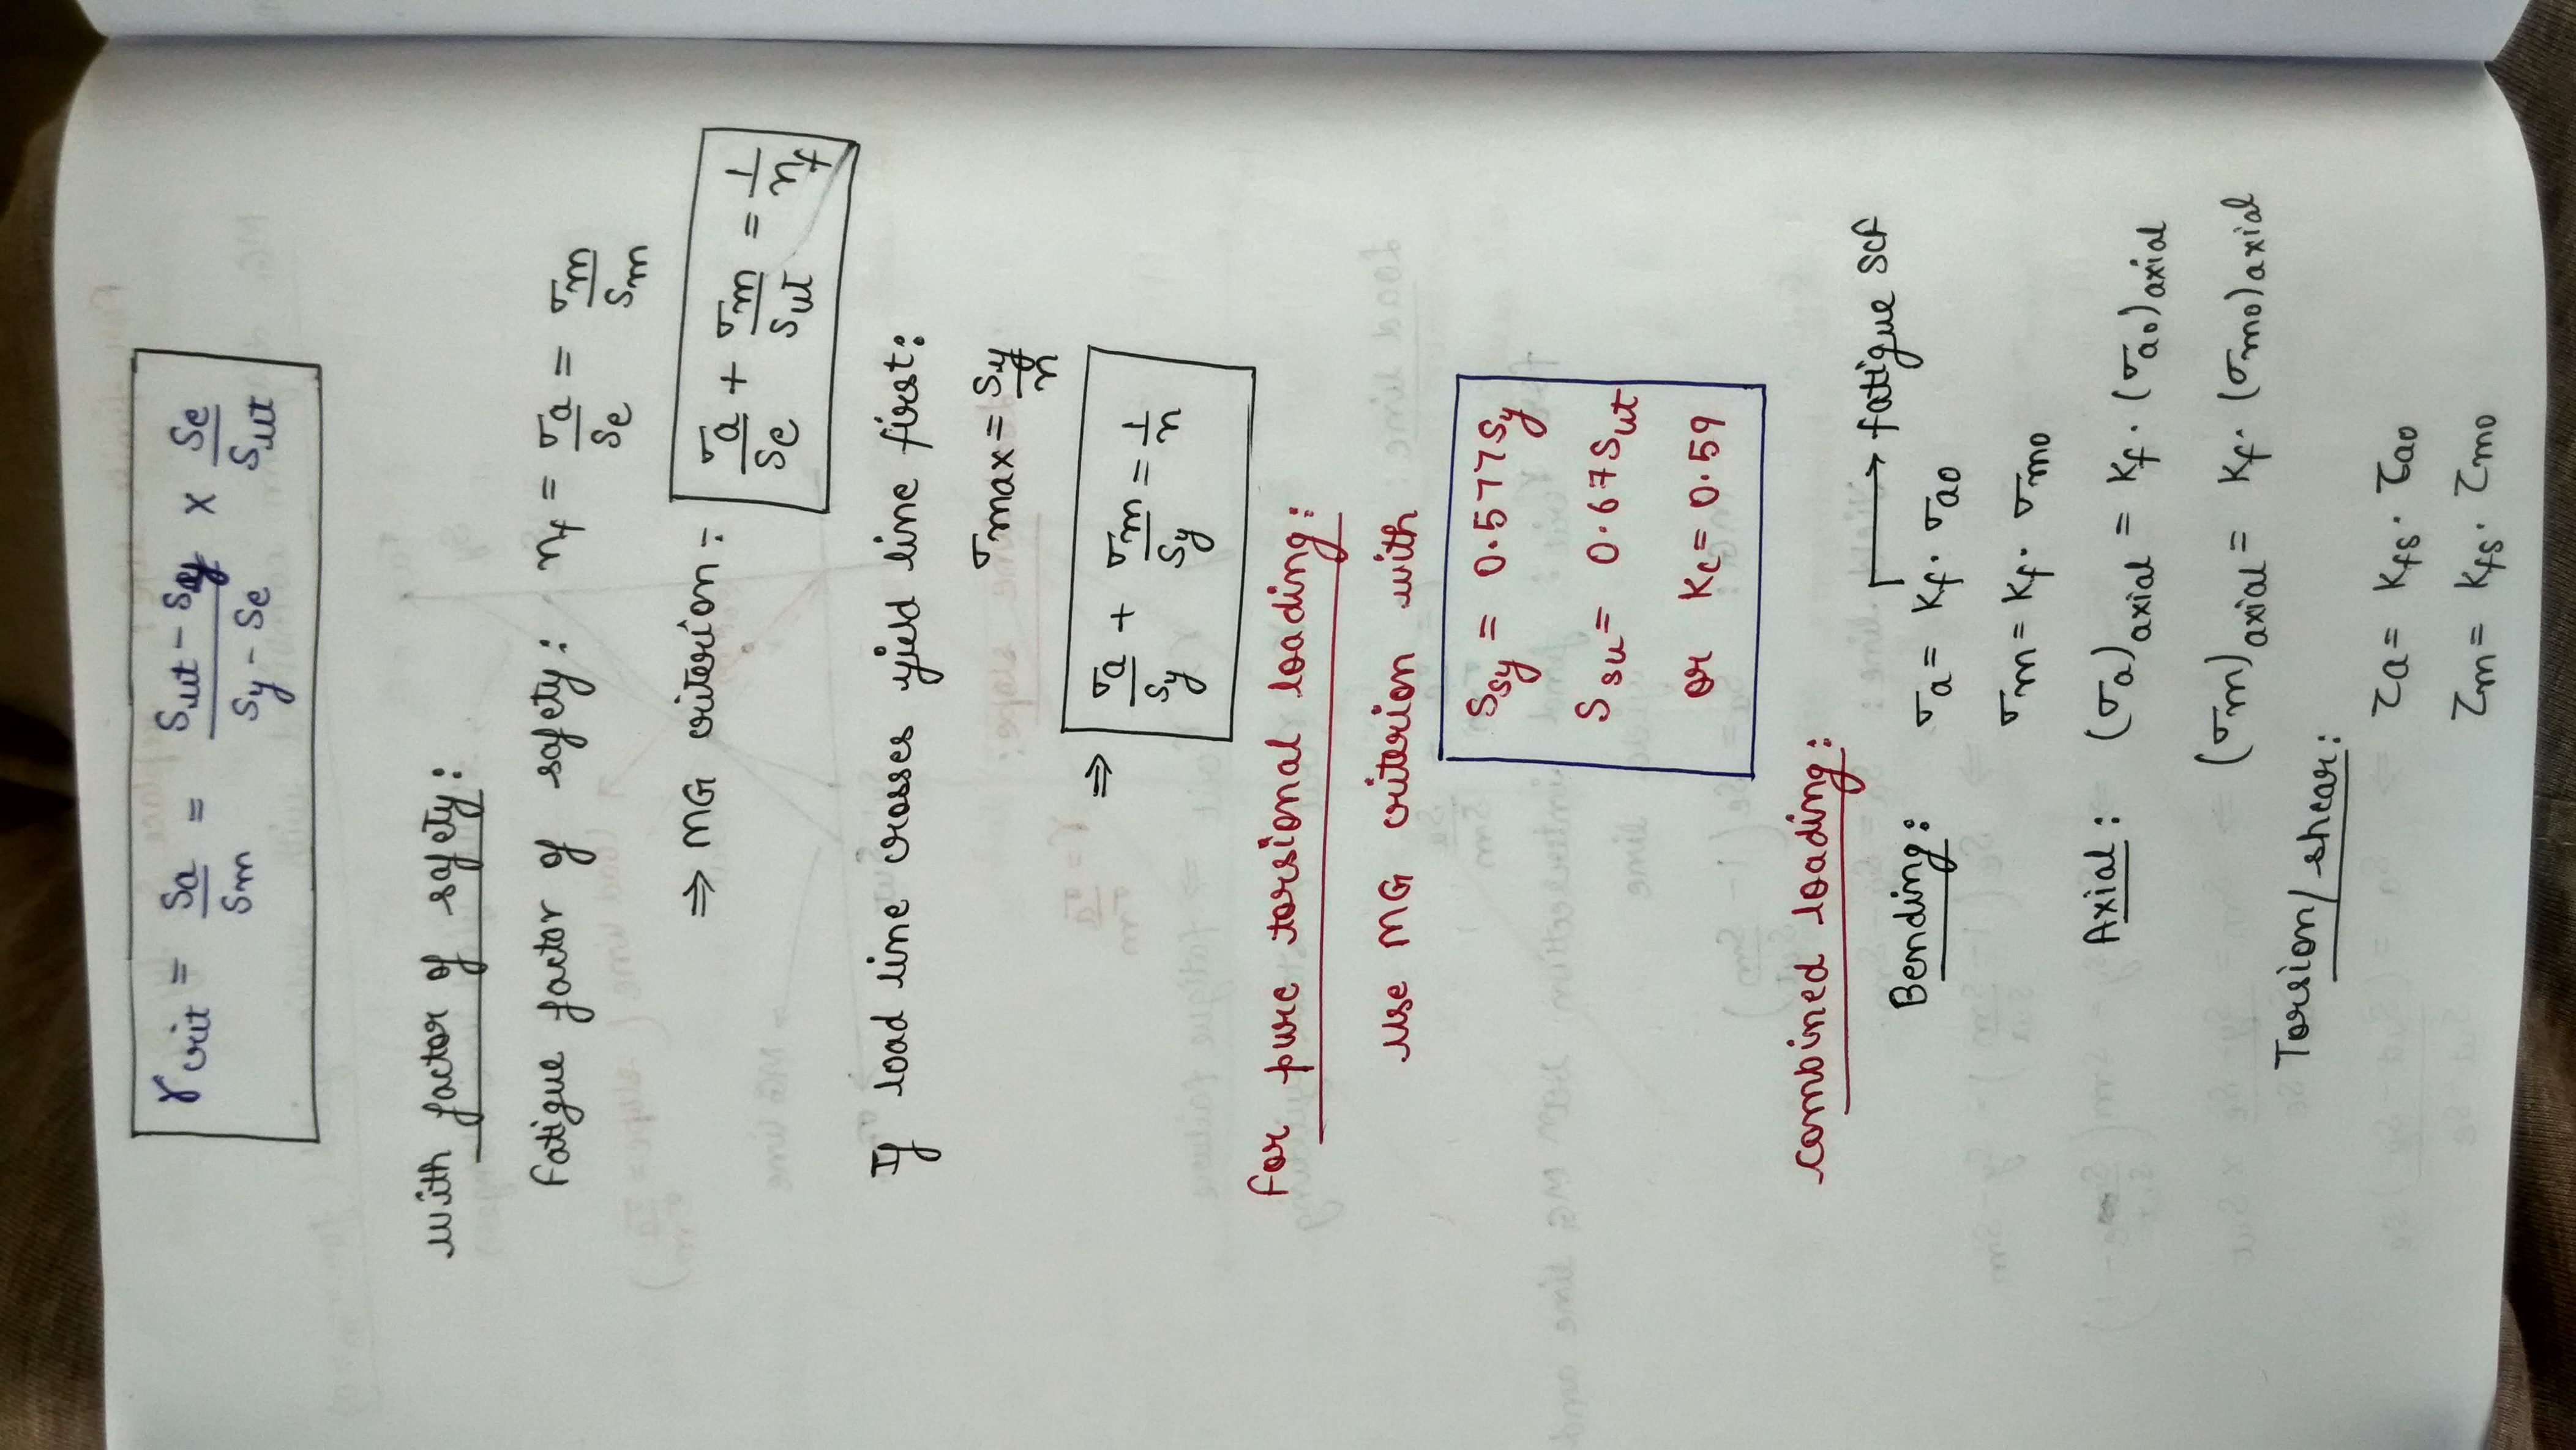 γcrit = Sa/Sm = (Sut - Sy)/(Sy - Se) × Se/Sut
with factor of safety:
Fatigue factor of safety: nf = σa/Se = σm/Sm
⇒ MG criterion - σa/Se + σm/Sut = 1/nf
If load line crosses yield line first:
σmax = Sy/n
⇒ σa/Sy + σm/Sy = 1/n
For pure torsional loading:
use MG criterion with
Ssy = 0.577Sy
Ssu = 0.67Sut
or Kc = 0.59
combined loading:
→ fatigue SCF
Bending: σa = Kf. σao
σm = Kf. σmo
Axial: (σa)axial = Kf. (σao)axial
(σm)axial = Kf. (σmo)axial
Torsion/shear:
τa = Kfs. τao
τm = Kfs. τmo